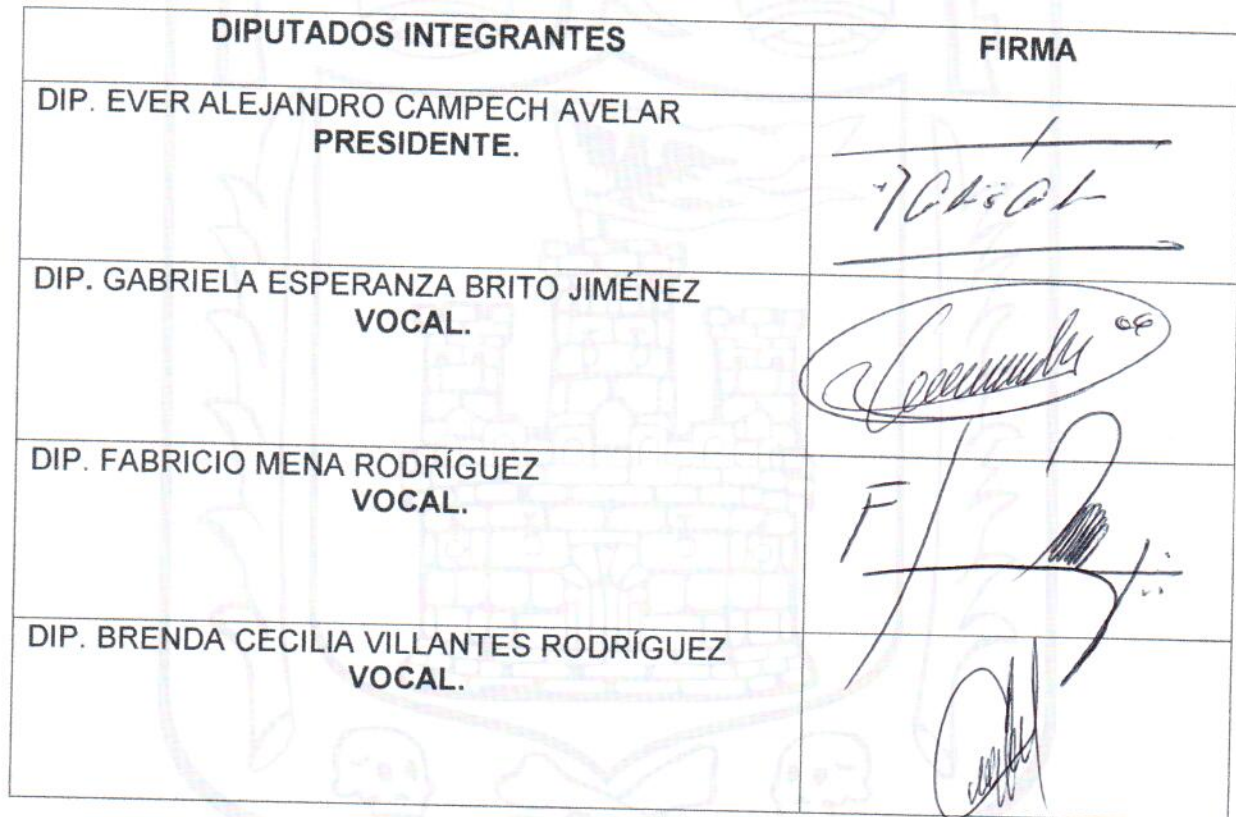 DIPUTADOS INTEGRANTES
FIRMA
DIP. EVER ALEJANDRO CAMPECH AVELAR
PRESIDENTE.
DIP. GABRIELA ESPERANZA BRITO JIMÉNEZ
VOCAL.
DIP. FABRICIO MENA RODRÍGUEZ
VOCAL.
DIP. BRENDA CECILIA VILLANTES RODRÍGUEZ
VOCAL.